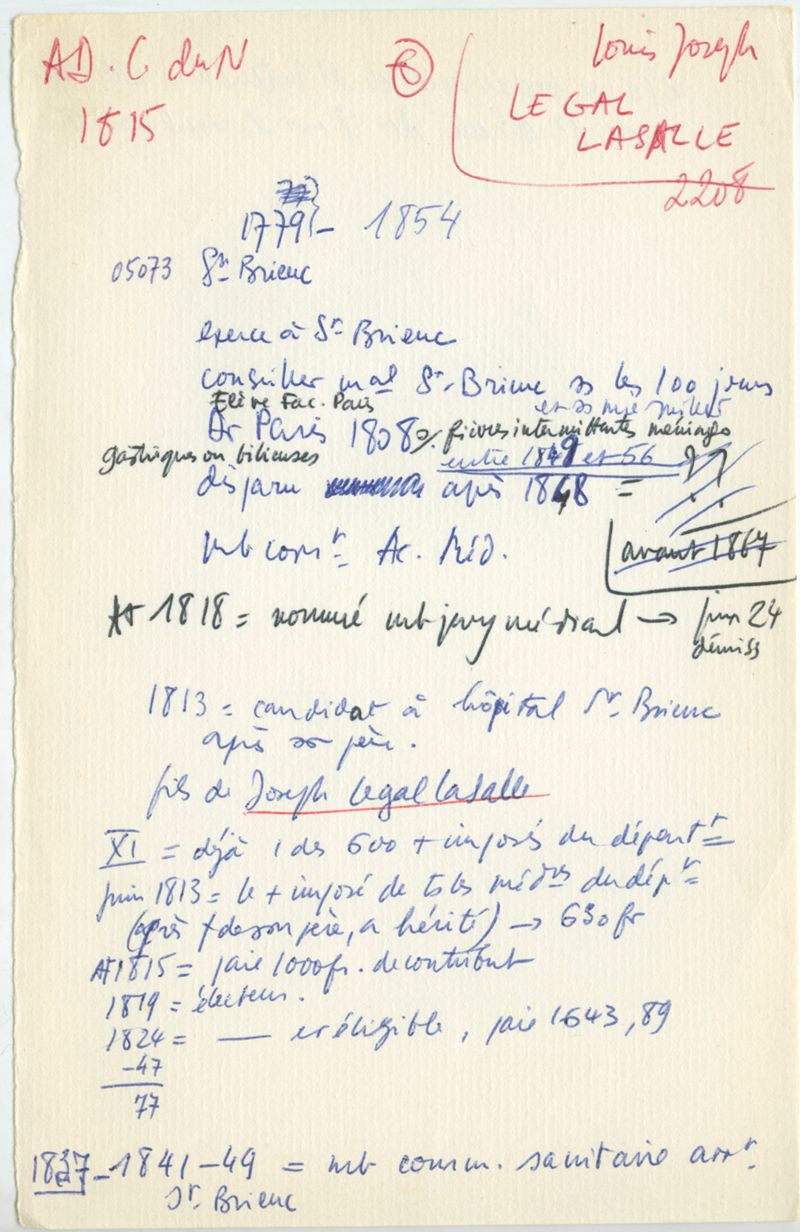 AD. C du N
1815
B
Louis Joseph
LE GAL
LASALLE
2208
77
1779 - 1854
05073 St Brieuc
exerce à St Brieuc
conseiller mal St-Brieuc ss les 100 jours
Elève Fac. Paris
et ss
Dr Paris 1808 fièvres intermittentes méningo
gastriques ou bilieuses
entre 1849 et 56
disparu après 1848 = ??
mb corrt Ac. Méd.
avant 1867
At 1818 = nommé mb jury médical → juin 24
démiss
1813 = candidat à hôpital St-Brieuc
après son père.
fils de Joseph Legal Lasalle
XI = déjà 1 des 600 + imposés du départt
juin 1813 = le + imposé de ts les médns du dépt =
(après † de son père, a hérité) → 630 fr
At 1815 = paie 1000 fr. de contribut
1819 = électeur.
1824 = — et éligible, paie 1643,89
-47
77
1837-1841-49 = mb comm. sanitaire arrt
St. Brieuc